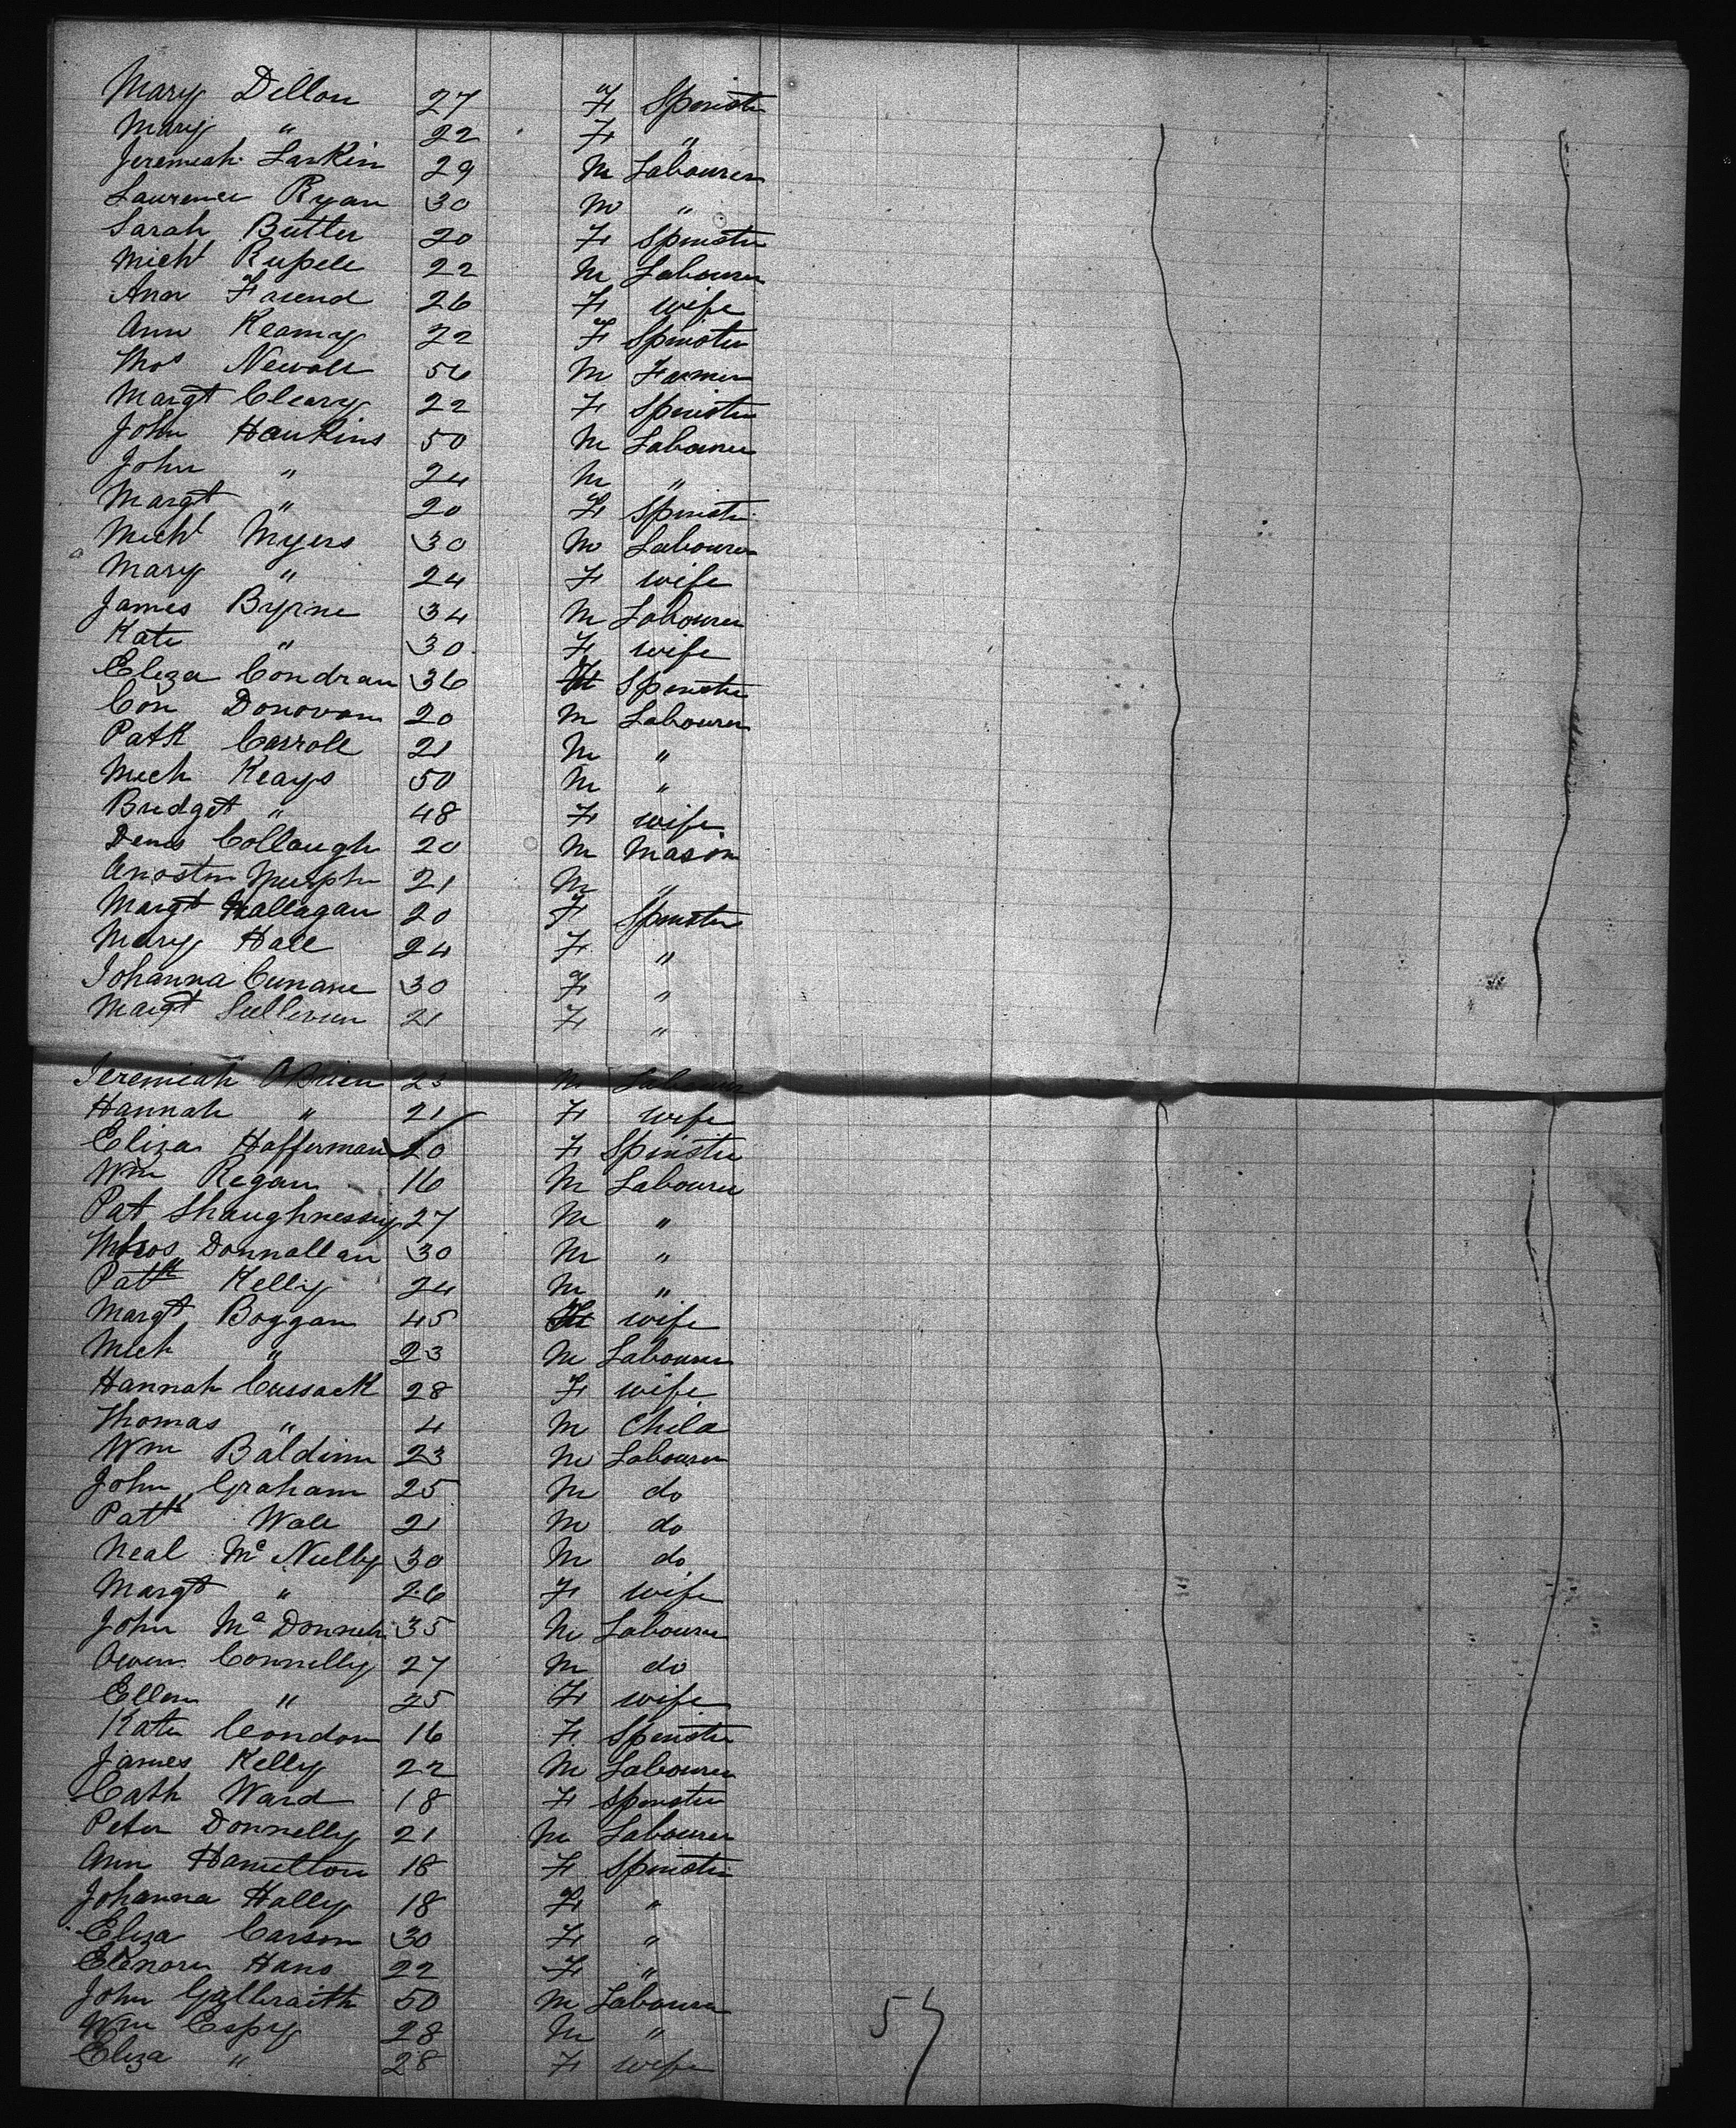 Mary Dillon 27 F Spinster
Mary " 22 F "
Jeremiah Larkin 29 M Labourer
Laurence Ryan 30 M "
Sarah Butler 20 F Spinster
Michl Rupell 22 M Labourer
Ann Friend 26 F wife
Ann Keamy 22 F Spinster
Thos Newall 56 M Farmer
Margt Cleary 22 F Spinster
John Hawkins 50 M Labourer
John " 24 M "
Margt " 20 F Spinster
Michl Myers 30 M Labourer
Mary " 24 F wife
James Byrne 34 M Labourer
Kate " 30 F wife
Eliza Condran 36 F Spinster
Con Donovan 20 M Labourer
Patk Carroll 21 M "
Mich Keays 50 M "
Bridget " 48 F wife
Denis Collough 20 M Mason
Murphy 21 M "
Margt Hallagan 20 F Spinster
Mary Hall 24 F "
Johanna Cunane 30 F "
Margt Sullivan 21 F "
Jeremiah OBrien 23 M Labourer
Hannah " 21 F wife
Eliza Hafferman 20 F Spinster
Wm Regan 16 M Labourer
Pat Shaughnessy 27 M "
Thos Donnallan 30 M "
Patk Kelly 24 M "
Margt Boggan 45 F wife
Mich " 23 M Labourer
Hannah Cussack 28 F wife
Thomas " 4 M Child
Wm Baldinn 23 M Labourer
John Graham 25 M do
Patk Wall 21 M do
Neal Mc Nulty 30 M do
Margt " 26 F wife
John Mc Donnell 35 M Labourer
Owen Connelly 27 M do
Ellen " 25 F wife
Kate Condon 16 F Spinster
James Kelly 22 M Labourer
Cath Ward 18 F Spinster
Peter Donnelly 21 M Labourer
Ann Hamilton 18 F Spinster
Johanna Hally 18 F "
Eliza Carson 30 F "
Elenore Hans 22 F "
John Galbraith 50 M Labourer
Wm Espy 28 M "
Eliza " 28 F wife
57